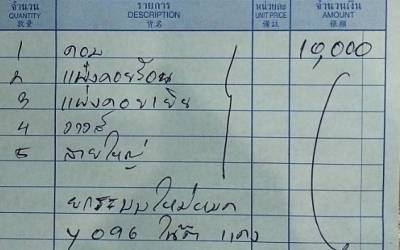 จำนวน รายการ หน่วยละ จำนวนเงิน
QUANTITY DESCRIPTION UNIT PRICE AMOUNT
數量 貨名 備註 銀額
1 คอม 10,000
2 แผงคอยร้อน
3 แผงคอยเย็น
4 วาวส์
5 สายใหญ่
ยกระบบใหม่หมด
แดง